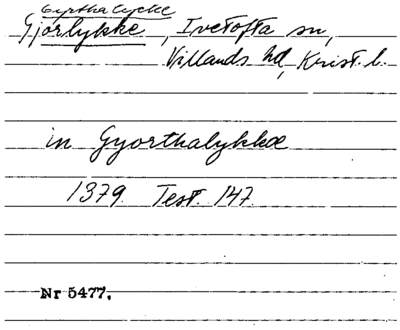 Gyrthalycke
Gjörlykke, Ivetofta sn,
Villands hd, Krist. l.
in Gyorthalykkæ
1379 Test. 147.
Nr 5477.